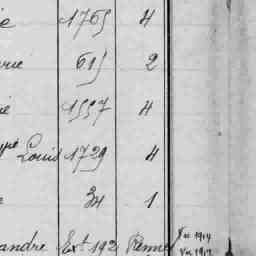 ie 1765 4
rie 615 2
ie 1557 4
Louis 1729 4
34 1
andre Ext 192 Renne Vu 1914
Vu 1919